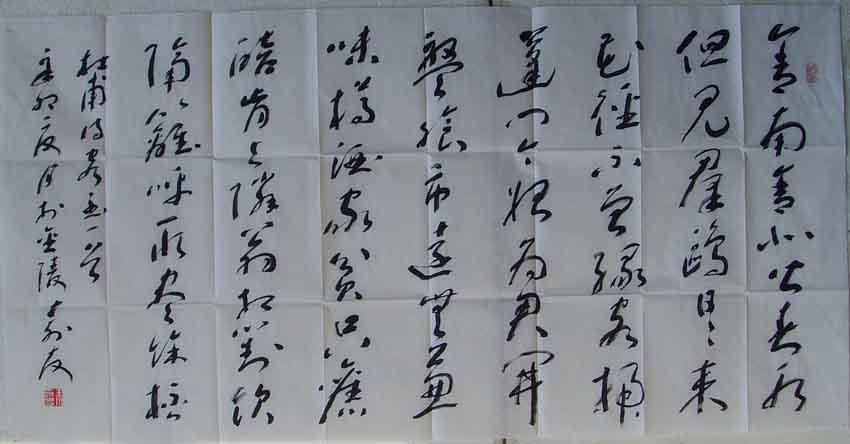 舍南舍北皆春水
但見羣鷗日日來
花徑不曾緣客掃
蓬門今始為君開
盤飧市遠無兼
味樽酒家貧只舊
醅肯与隣翁相對飲
隔籬呼取盡餘杯
杜甫詩客至一首
辛卯夏月於金陵